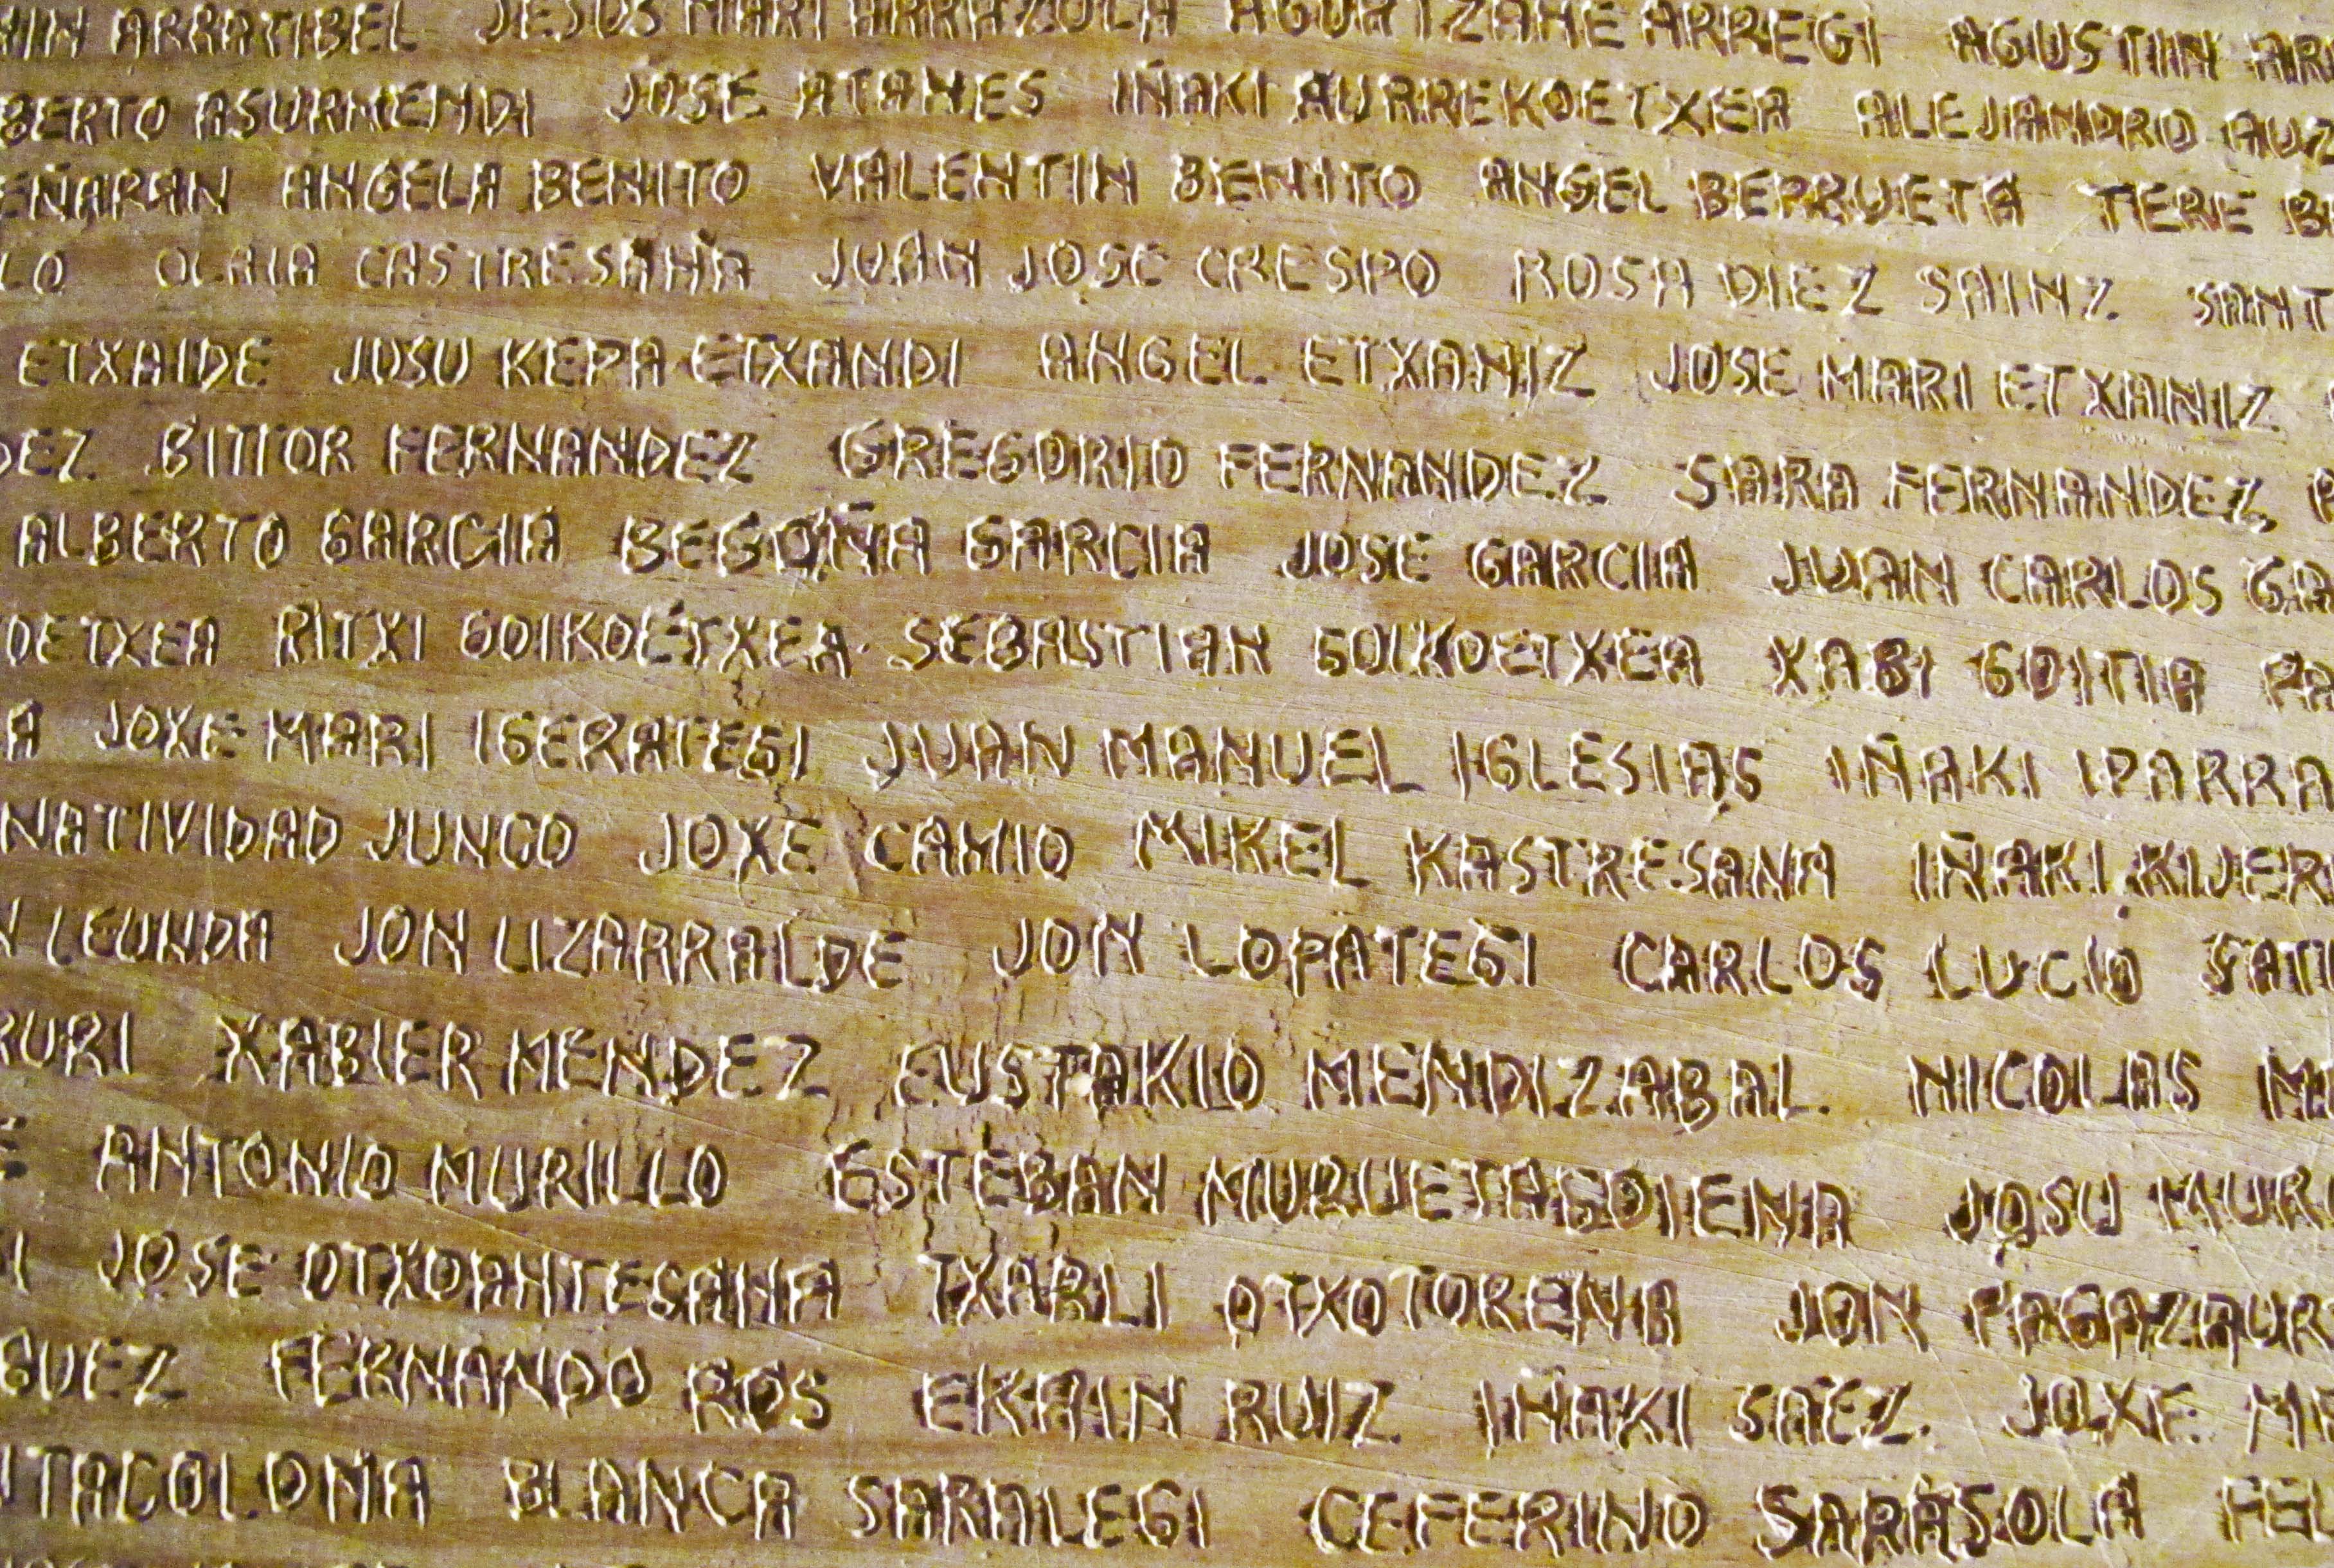 ARRATIBEL JESUS MARI ARRAZOLA AGURTZANE ARREGI AGUSTIN
BERTO ASURMENDI JOSE ATANES IÑAKI AURREKOETXEA ALEJANDRO AUZ
EÑARAN ANGELA BENITO VALENTIN BENITO ANGEL BERRUETA TERE BE
LO OLAIA CASTRESANA JUAN JOSE CRESPO ROSA DIEZ SAINZ SANT
ETXAIDE JOSU KEPA ETXANDI ANGEL ETXANIZ JOSE MARI ETXANIZ
DEZ BITTOR FERNANDEZ GREGORIO FERNANDEZ SARA FERNANDEZ
ALBERTO GARCIA BEGOÑA GARCIA JOSE GARCIA JUAN CARLOS GA
OETXEA RITXI GOIKOETXEA SEBASTIAN GOIKOETXEA XABI GOITIA PA
A JOXE MARI IGERATEGI JUAN MANUEL IGLESIAS IÑAKI IPARRA
NATIVIDAD JUNCO JOXE CAMIO MIKEL KASTRESANA IÑAKI KIJER
N LEUNDA JON LIZARRALDE JON LOPATEGI CARLOS LUCIO SATU
RURI XABIER MENDEZ EUSTAKIO MENDIZABAL NICOLAS ME
E ANTONIO MURILLO ESTEBAN MURUETAGOIENA JOSU MUR
I JOSE OTXOANTESANA TXARLI OTXOTORENA JON PAGAZAUR
GUEZ FERNANDO ROS EKAIN RUIZ IÑAKI SAEZ JOXE MA
NTACOLOMA BLANCA SARALEGI CEFERINO SARASOLA FEL